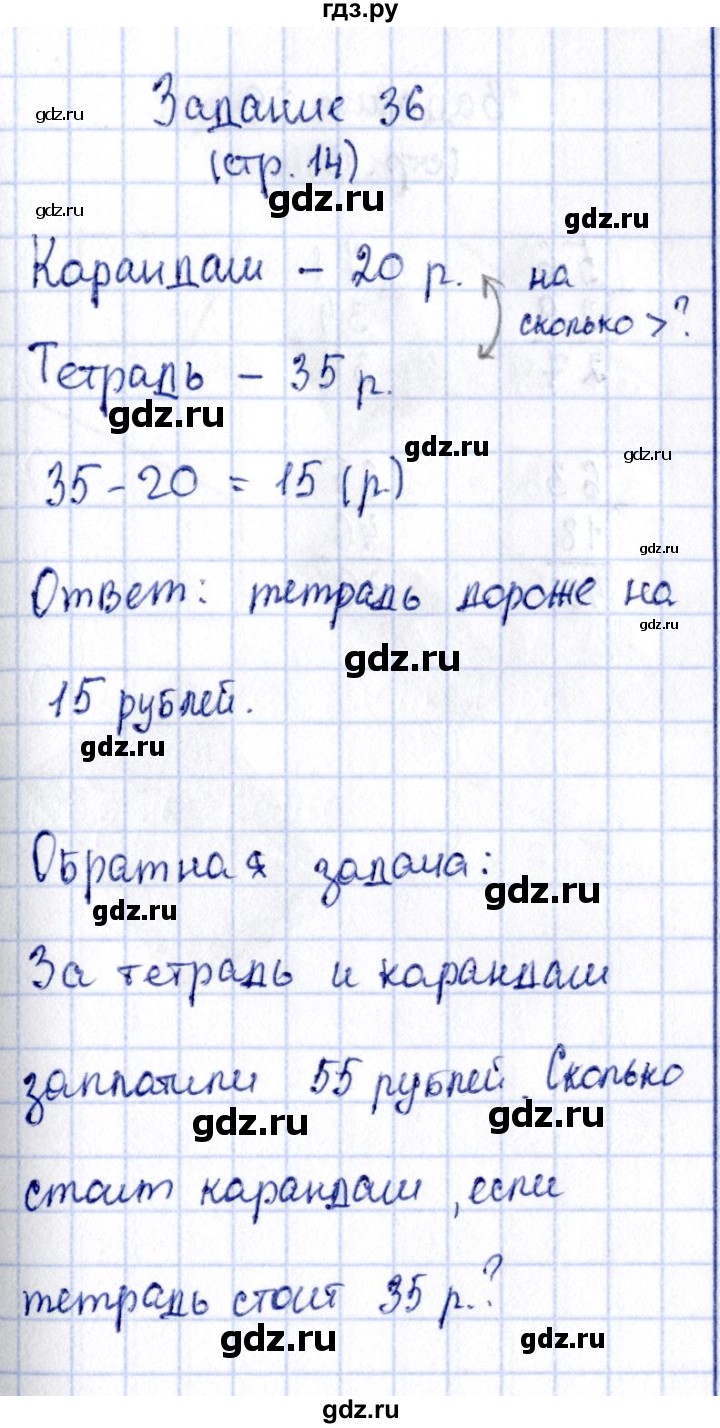 гдз.ру
Задание 36
gdz.ru
(стр. 14)
gdz.ru
gdz.ru
gdz.ru
Карандаш – 20 р. на
сколько >?
Тетрадь – 35 р.
gdz.ru
gdz.ru
gdz.ru
35 – 20 = 15 (р.)
gdz.ru
Ответ: тетрадь дороже на
gdz.ru
gdz.ru
15 рублей.
gdz.ru
Обратная задача:
gdz.ru
gdz.ru
За тетрадь и карандаш
заплатили 55 рублей. Сколько
gdz.ru
gdz.ru
стоит карандаш, если
тетрадь стоит 35 р.?
gdz.ru
gdz.ru
gdz.ru